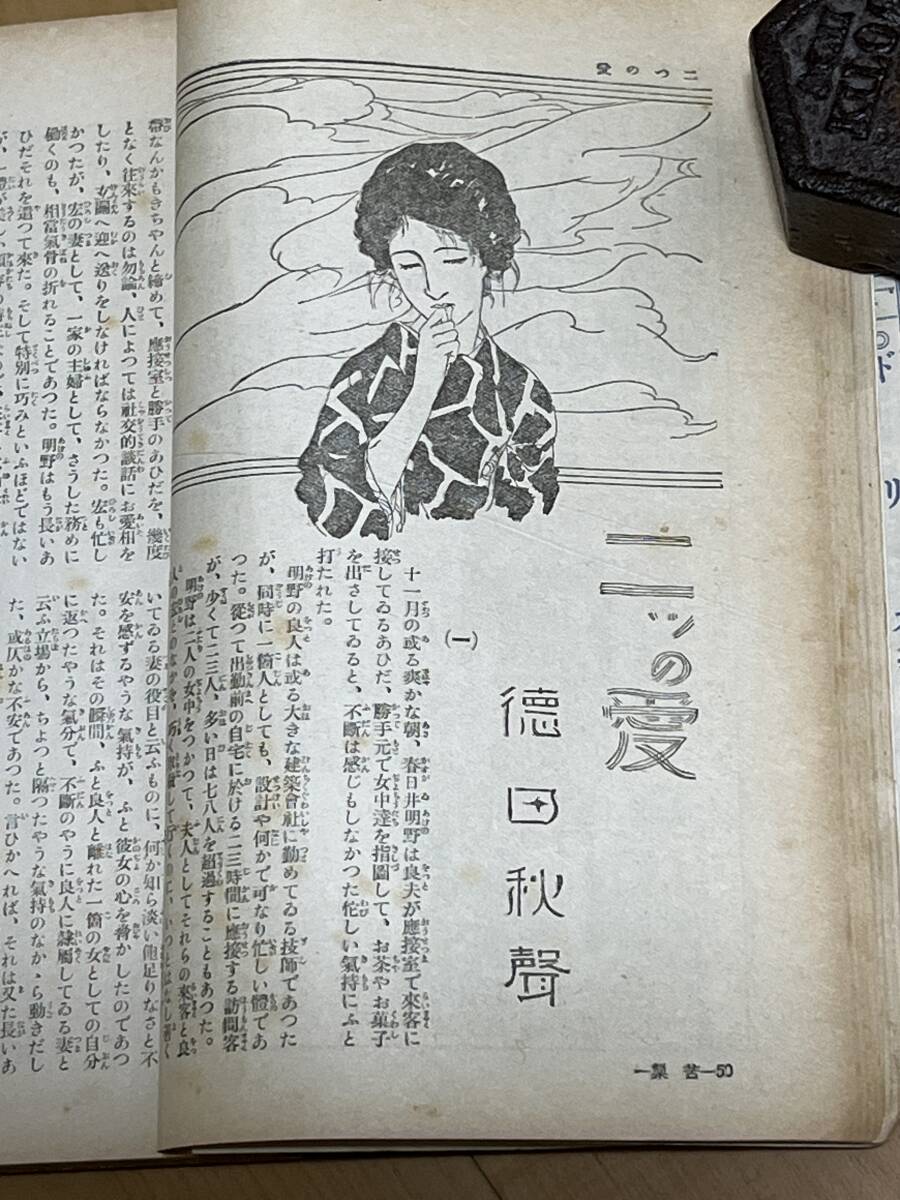 二つの愛
二ツの愛
徳田秋聲
(一)
十一月の或る爽かな朝、春日井明野は良夫が應接室で來客に
接してゐるあひだ、勝手元で女中達を指圖して、お茶やお菓子
を出さしてゐると、不斷は感じもしなかつた佗しい氣持にふと
打たれた。
明野の良人は或る大きな建築會社に勤めてゐる技師であつた
が、同時に一箇人としても、設計や何かで可なり忙しい體であ
つた。從つて出勤前の自宅に於ける二三時間に應接する訪問客
が、少くて二三人、多い日は七八人を超過することもあつた。
明野は二人の女中をつかつて、夫人としてそれらの來客と良
帶なんかもきちやんと締めて、應接室と勝手のあひだを、幾度
となく往來するのは勿論、人によつては社交的談話にお愛相を
したり、玄關へ迎へ送りをしなければならなかつた。宏も忙し
かつたが、宏の妻として、一家の主婦として、さうした務めに
働くのも、相當氣骨の折れることであつた。明野はもう長いあ
ひだそれを遣つて來た。そして特別に巧みといふほどではない
いてゐる妻の役目と云ふものに、何か知ら淡い飽足りなさと不
安を感ずるやうな氣持が、ふと彼女の心を脅かしたのであつ
た。それはその瞬間、ふと良人と離れた一箇の女としての自分
に返つたやうな氣分で、不斷のやうに良人に隷屬してゐる妻と
云ふ立場から、ちよつと隔つたやうな氣持のなかゝら動きだし
た、或仄かな不安であつた。言ひかへれば、それは又た長いあ
一樂 苦—50